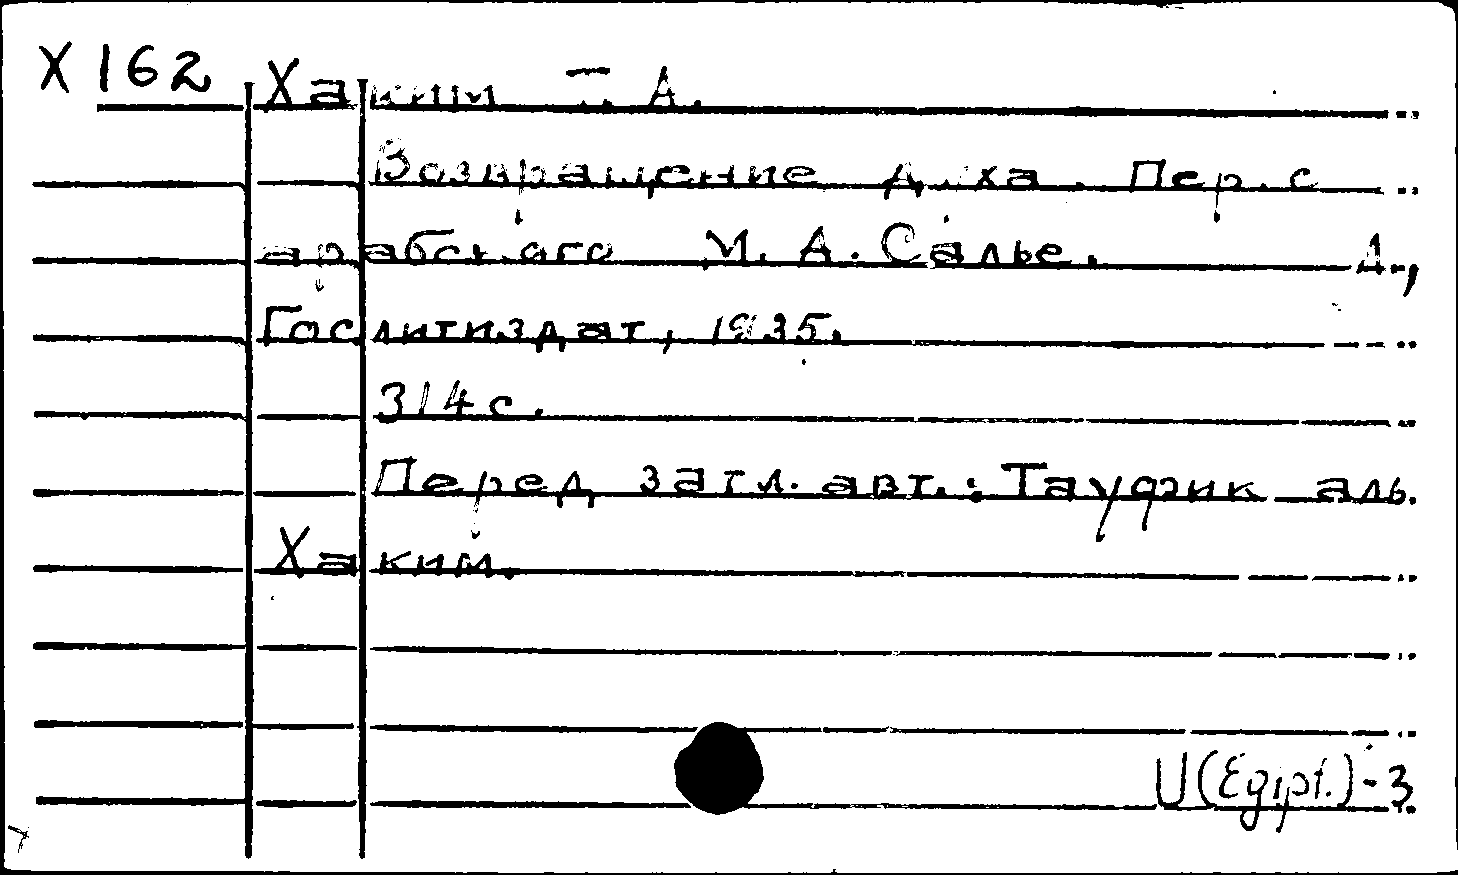 Х 162 Хаким Т. А.
Возвращение духа. Пер. с
арабского М. А. Салье. Л.,
Гослитиздат, 1935.
314 с.
Перед загл. авт.: Тауфик аль.
Хаким.
U (Egipt.) - 3